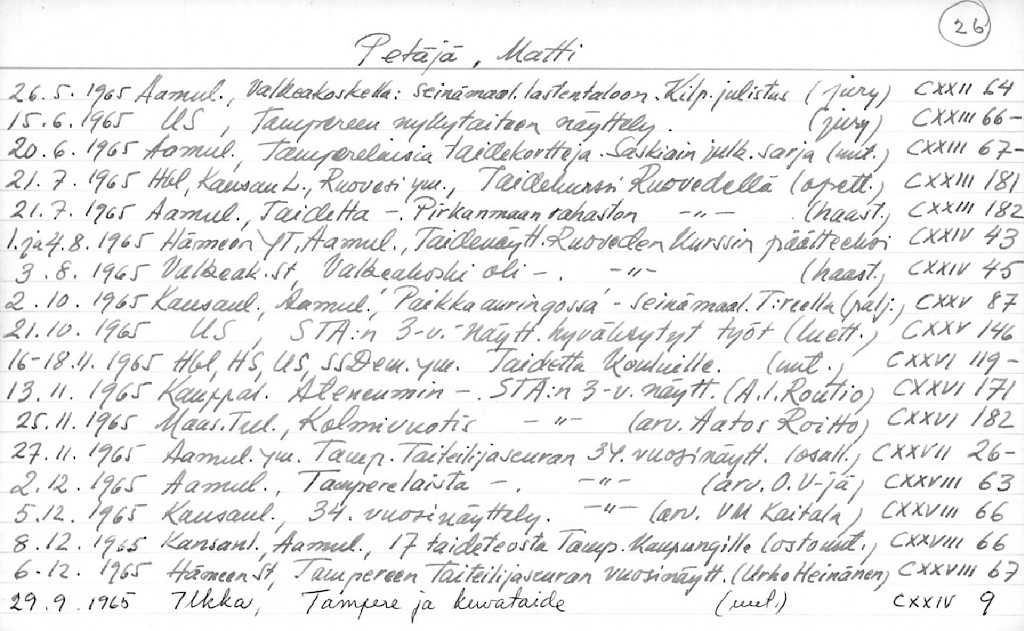 26
Petäjä, Matti
26.5.1965 Aamul., Valkeakoskella: seinämaal. lastentaloon. Kilp. julistus (jury) CXXII 64
15.6.1965 US, Tampereen nykytaiteen näyttely. (jury) CXXIII 66-
20.6.1965 Aamul., Tamperelaisia taidekortteja. Saskiain julk. sarja (uut.) CXXIII 67-
21.7.1965 Hbl, Kansan L., Ruovesi ym., Taidekurssi Ruovedellä (opett.) CXXIII 181
21.7.1965 Aamul., Taidetta -. Pirkanmaan rahaston -"- (haast.) CXXIII 182
1. ja 4.8.1965 Hämeen YT, Aamul., Taidenäytt. Ruoveden kurssin päätteeksi CXXIV 43
3.8.1965 Valkeak. St, Valkeakoski oli -. -"- (haast.) CXXIV 45
2.10.1965 Kansanl., Aamul., 'Paikka auringossa' - seinämaal. T:reella (palj.) CXXV 87
21.10.1965 US, STA:n 3-v. näytt. hyväksytyt työt (luett.) CXXV 146
16-18.11.1965 Hbl, HS, US, SSDem. ym. Taidetta kouluille. (uut.) CXXVI 119-
13.11.1965 Kauppal. Ateneumin -. STA:n 3-v. näytt. (A.I. Routio) CXXVI 171
25.11.1965 Maas. Tul., Kolmivuotis -"- (arv. Aatos Roitto) CXXVI 182
27.11.1965 Aamul. ym. Tamp. Taiteilijaseuran 34. vuosinäytt. (osall.) CXXVII 26-
2.12.1965 Aamul., Tamperelaista -. -"- (arv. O.V-jä) CXXVIII 63
5.12.1965 Kansanl., 34. vuosinäyttely. -"- (arv. VM Kaitala) CXXVIII 66
8.12.1965 Kansanl., Aamul., 17 taideteosta Tamp. kaupungille (ostouut.) CXXVIII 66
6.12.1965 Hämeen St, Tampereen Taiteilijaseuran vuosinäytt. (Urho Heinänen) CXXVIII 67
29.9.1965 Ilkka, Tampere ja kuvataide (uut.) CXXIV 9